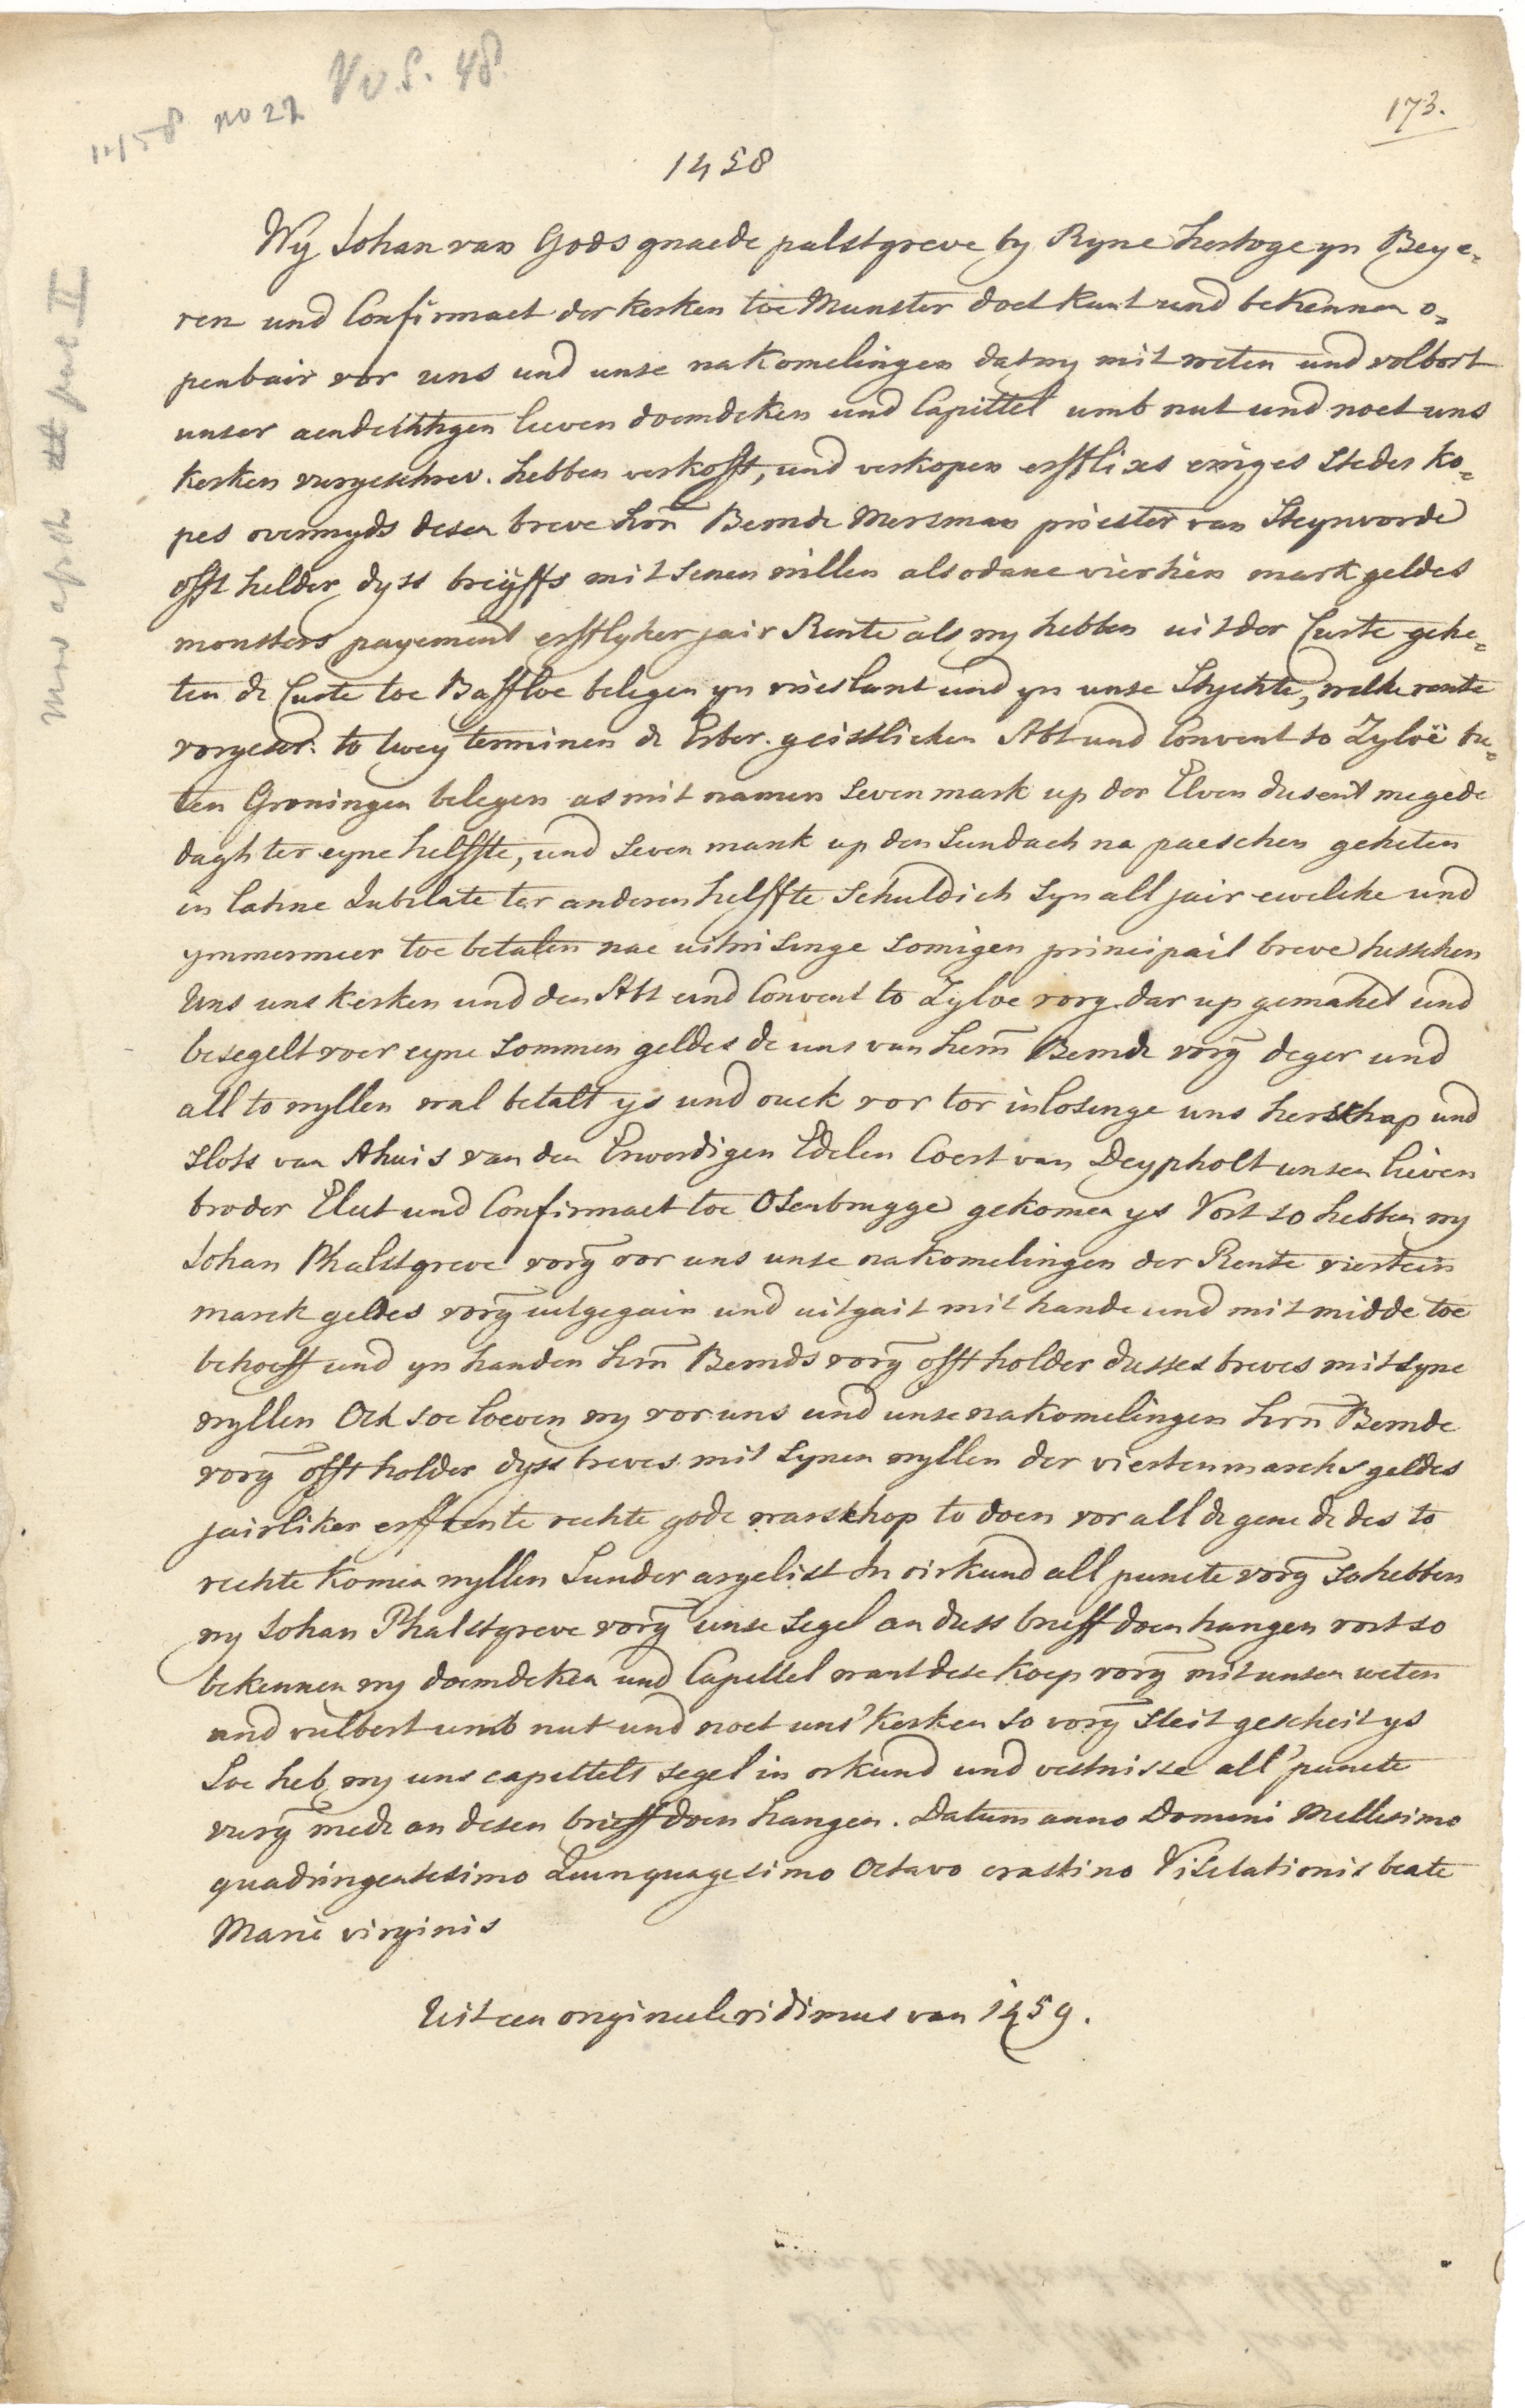 1458 no 22 VvS. 48
173.
1458
Wy Johan van Gods gnaede palstgreve by Ryne hertoge yn Beye=
ren und Confirmaet der kerken toe Munster doet kunt und bekennen o=
penbair vor uns und unse nakomelingen dat wy mit weten und volbort
unser aendechtigen lieven doemdeken und Capittel umb nut und noet uns
kerken vurgeschrev. hebben verkofft, und verkopen erfflixs ewiges stedes ko=
pes overmyds desen breve hrn Bernde Mersman priester van Steynvorde
offt helder dyss breiffs mit senen willen alsodane viertien mark geldes
monsters payement erfflyker jair Rente als wy hebben uit der Curte gehe=
ten de Curte toe Baffloe belegen yn vrieslant und yn unse Stychte, welke rente
vorgescr. to twey terminen de Erber. geistlicken Abt und Convent to Zyloë bu=
ten Groningen belegen as mit namen seven mark up der Elven dusent megede
dagh ter eyne helffte, und seven mark up den Sundach na paeschen geheten
in latine Jubilate ter anderen helffte schuldich syn all jair ewelike und
ymmermeer toe betalen nae uitwisinge somigen principail breve tusschen
Uns uns kerken und den Abt und Convent to Zyloe vorg. dar up gemaket und
besegelt voer eyne sommen geldes de uns van hern Bernde vorg deger und
all to wyllen wal betalt ys und ouck vor tor inlosinge uns herschap und
slots van Ahuis van den Erwerdigen Edelen Coert van Deypholt unsen lieven
broder Elect und Confirmaet toe Osenbrugge gekomen ys Vort so hebben wy
Johan Phalstgreve vorg vor uns unse nakomelingen der Rente viertein
marck geldes vorg uitgegain und uitgait mit hande und mit midde toe
behoeff und yn handen hrn Bernds vorg offt holder dusses breves mit syne
wyllen Ock soe loeven wy vor uns und unse nakomelingen hrn Bernde
vorg offt holder dyss breves mit synen wyllen der vierten marcks geldes
jairliker erffrente rechte gode warschop to doen vor all de gene de des to
rechte komen wyllen Sunder argelist In oirkund all puncte vorg so hebben
wy Johan Phalstgreve vorg unse segel an duss brieff doen hangen vort so
bekennen wy doemdeken und Capittel want dese koep vorg mit unsen weten
und vulbort umb nut und noet uns' kerken so vorg steit gescheit ys
Soe heb wy uns capittels segel in orkund und vestnisse all' puncte
vurg mede an desen brieff doen hangen. Datum anno Domini Millesimo
quadringentesimo Quinquagesimo Octavo crastino Visitationis beate
Marie virginis
Uit een origineel vidimus van 1459.